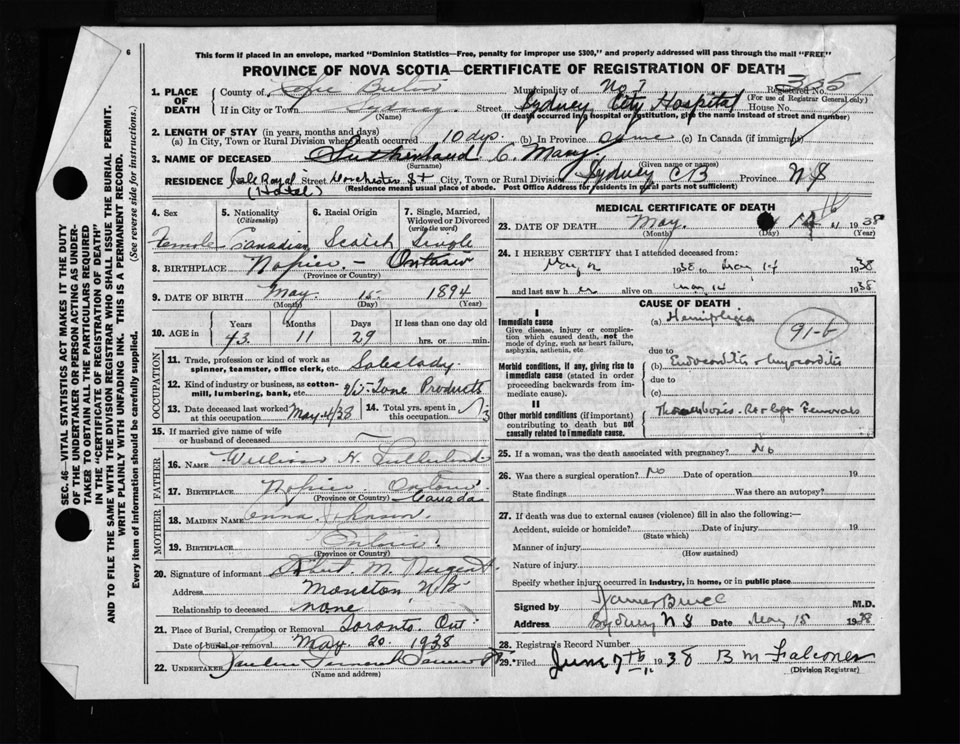 6
This form if placed in an envelope, marked "Dominion Statistics—Free, penalty for improper use $300," and properly addressed will pass through the mail "FREE"
PROVINCE OF NOVA SCOTIA—CERTIFICATE OF REGISTRATION OF DEATH
305
1. PLACE OF DEATH County of Cape Breton Municipality of No 7 Registered No.
(For use of Registrar General only)
If in City or Town Sydney Street Sydney City Hospital House No.
(Name) (If death occurred in a hospital or institution, give the name instead of street and number)
2. LENGTH OF STAY (in years, months and days)
(a) In City, Town or Rural Division where death occurred 10 dys. (b) In Province (c) In Canada (if immigrant)
3. NAME OF DECEASED Sutherland C. Mary
(Surname) (Given name or names)
RESIDENCE Isle Royal Street Dorchester St City, Town or Rural Division Sydney CB Province N S
(Hotel) (Residence means usual place of abode. Post Office Address for residents in rural parts not sufficient)
4. Sex 5. Nationality (Citizenship) 6. Racial Origin 7. Single, Married, Widowed or Divorced (write the word)
Female Canadian Scotch Single
8. BIRTHPLACE Napier - Ontario
(Province or Country)
9. DATE OF BIRTH May 15 1894
(Month) (Day) (Year)
10. AGE in Years Months Days If less than one day old
43 11 29 hrs. or min.
OCCUPATION
11. Trade, profession or kind of work as spinner, teamster, office clerk, etc. Saleslady
12. Kind of industry or business, as cotton-mill, lumbering, bank, etc. Vi-Tone Products
13. Date deceased last worked at this occupation May 4/38 14. Total yrs. spent in this occupation 3
15. If married give name of wife or husband of deceased —
FATHER
16. NAME William H. Sutherland
17. BIRTHPLACE Napier Ontario
(Province or Country) Canada
MOTHER
18. MAIDEN NAME Anna Johnson
19. BIRTHPLACE Ontario
(Province or Country)
20. Signature of informant M. Nugent
Address Moncton, N.B.
Relationship to deceased none
21. Place of Burial, Cremation or Removal Toronto Ont
Date of burial or removal May 20. 1938
22. UNDERTAKER
(Name and address)
MEDICAL CERTIFICATE OF DEATH
23. DATE OF DEATH May 14th 1938
(Month) (Day) (Year)
24. I HEREBY CERTIFY that I attended deceased from:
May 1938 to May 14 1938
and last saw her alive on May 14 1938
CAUSE OF DEATH
I
Immediate cause (a) Hemiplegia
91-b
Give disease, injury or complication which caused death, not the mode of dying, such as heart failure, asphyxia, asthenia, etc
due to
Morbid conditions, if any, giving rise to immediate cause (stated in order proceeding backwards from immediate cause) (b) Endocarditis & Myocarditis
due to
(c)
II
Other morbid conditions (if important) contributing to death but not causally related to immediate cause. Thrombosis - Rt & left Femorals
25. If a woman, was the death associated with pregnancy? No
26. Was there a surgical operation? No Date of operation 19
State findings Was there an autopsy?
27. If death was due to external causes (violence) fill in also the following:—
Accident, suicide or homicide? Date of injury 19
(State which)
Manner of injury
(How sustained)
Nature of injury
Specify whether injury occurred in industry, in home, or in public place
Signed by M.D.
Address Sydney N S Date May 15 1938
28. Registrar's Record Number
29. Filed June 7th 1938 B M Falconer
(Division Registrar)
SEC. 46—VITAL STATISTICS ACT MAKES IT THE DUTY
OF THE UNDERTAKER OR PERSON ACTING AS UNDER-
TAKER TO OBTAIN ALL THE PARTICULARS REQUIRED
IN THE "CERTIFICATE OF REGISTRATION OF DEATH"
AND TO FILE THE SAME WITH THE DIVISION REGISTRAR WHO SHALL ISSUE THE BURIAL PERMIT.
WRITE PLAINLY WITH UNFADING INK. THIS IS A PERMANENT RECORD.
Every item of information should be carefully supplied. (See reverse side for instructions.)